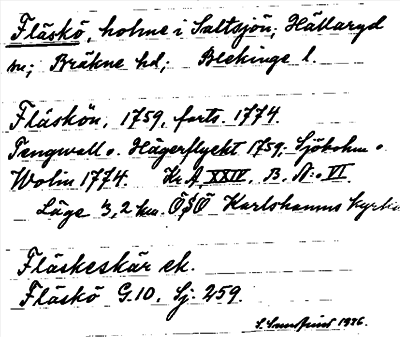 Fläskö, holme i Saltsjön; Hällaryd
sn; Bräkne hd; Blekinge l.
Fläskön, 1759, forts. 1774.
Tengwall o. Hägerflycht 1759; Sjöbohm o.
Wolin 1774. Kr. A, XXIV, B. N:o VI.
Läge 3,2 km. ÖSÖ Karlshamns kyrka
Fläskeskär ek.
Fläskö G.10. Sj: 259.
1936.